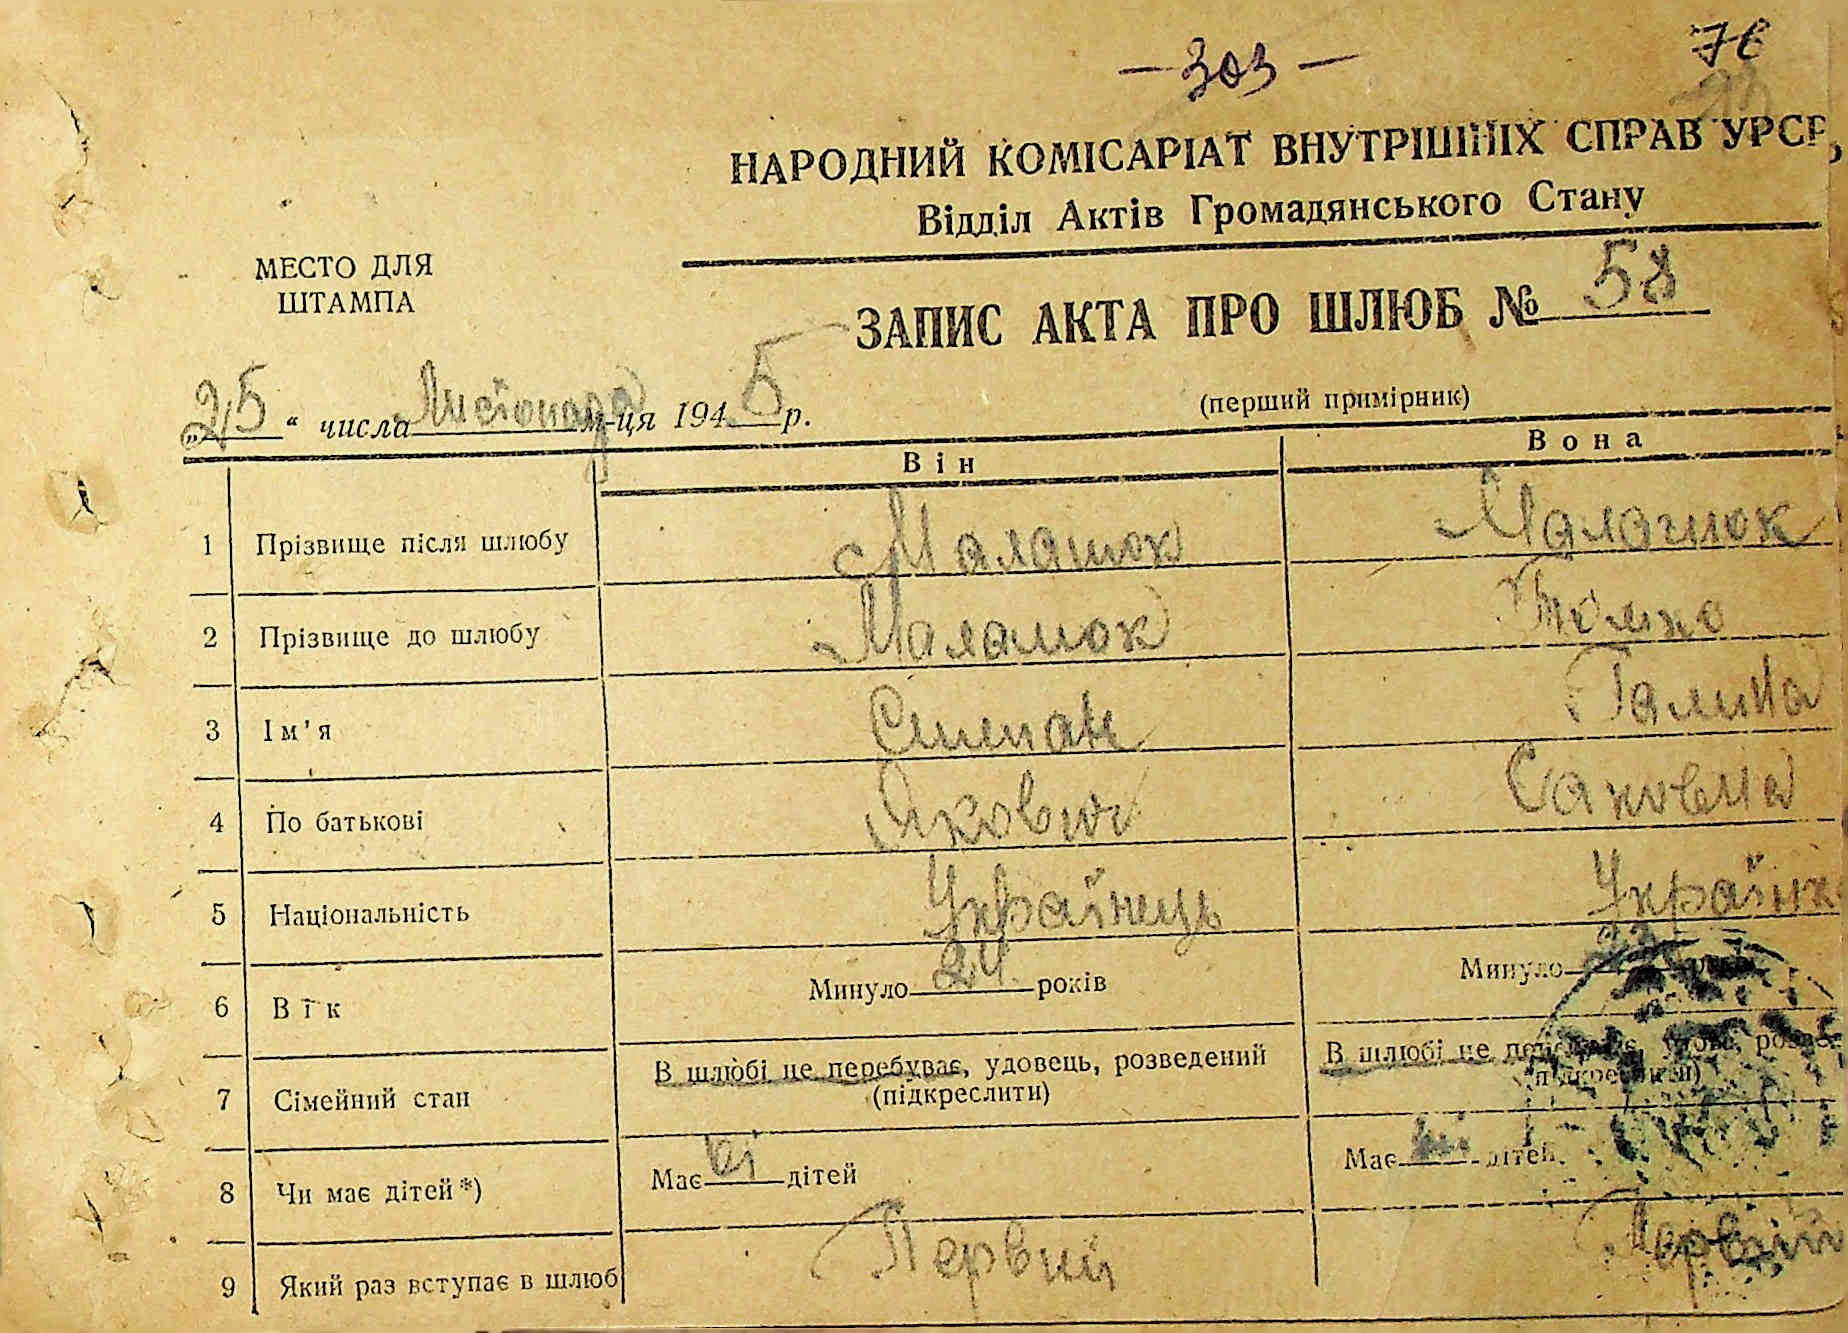 — 303 —
76
НАРОДНИЙ КОМІСАРІАТ ВНУТРІШНІХ СПРАВ УРСР,
Відділ Актів Громадянського Стану
МЕСТО ДЛЯ
ШТАМПА
ЗАПИС АКТА ПРО ШЛЮБ № 58
(перший примірник)
„25“ числа Листопада м-ця 1945 р.
Він Вона
1 Прізвище після шлюбу Малашок Малашок
2 Прізвище до шлюбу Малашок
3 Ім'я Степан Галина
4 По батькові Якович Саковна
5 Національність Українець Українк
6 Вік Минуло 24 років Минуло 22 років
7 Сімейний стан В шлюбі не перебуває, удовець, розведений В шлюбі не перебуває, удова, розве
(підкреслити) (підкреслити)
8 Чи має дітей*) Має ні дітей Має ні дітей
9 Який раз вступає в шлюб Первий Первий